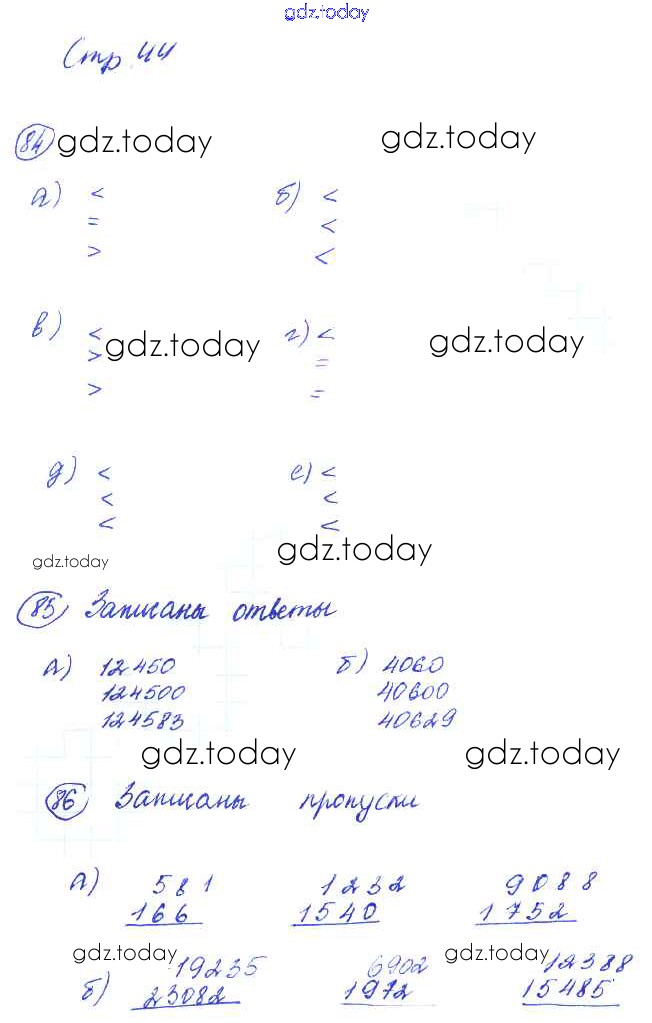 gdz.today
Стр. 44
84 gdz.today gdz.today
а) < б) <
= <
> <
в) < gdz.today г) < gdz.today
> =
> =
д) < е) <
< <
< <
gdz.today gdz.today
85 Записаны ответы
а) 12450 б) 4060
124500 40600
124583 40629
gdz.today gdz.today
86 Записаны пропуски
а) 581 1232 9088
166 1540 1752
gdz.today gdz.today gdz.today
19235 6902 12388
б) 23082 1972 15485